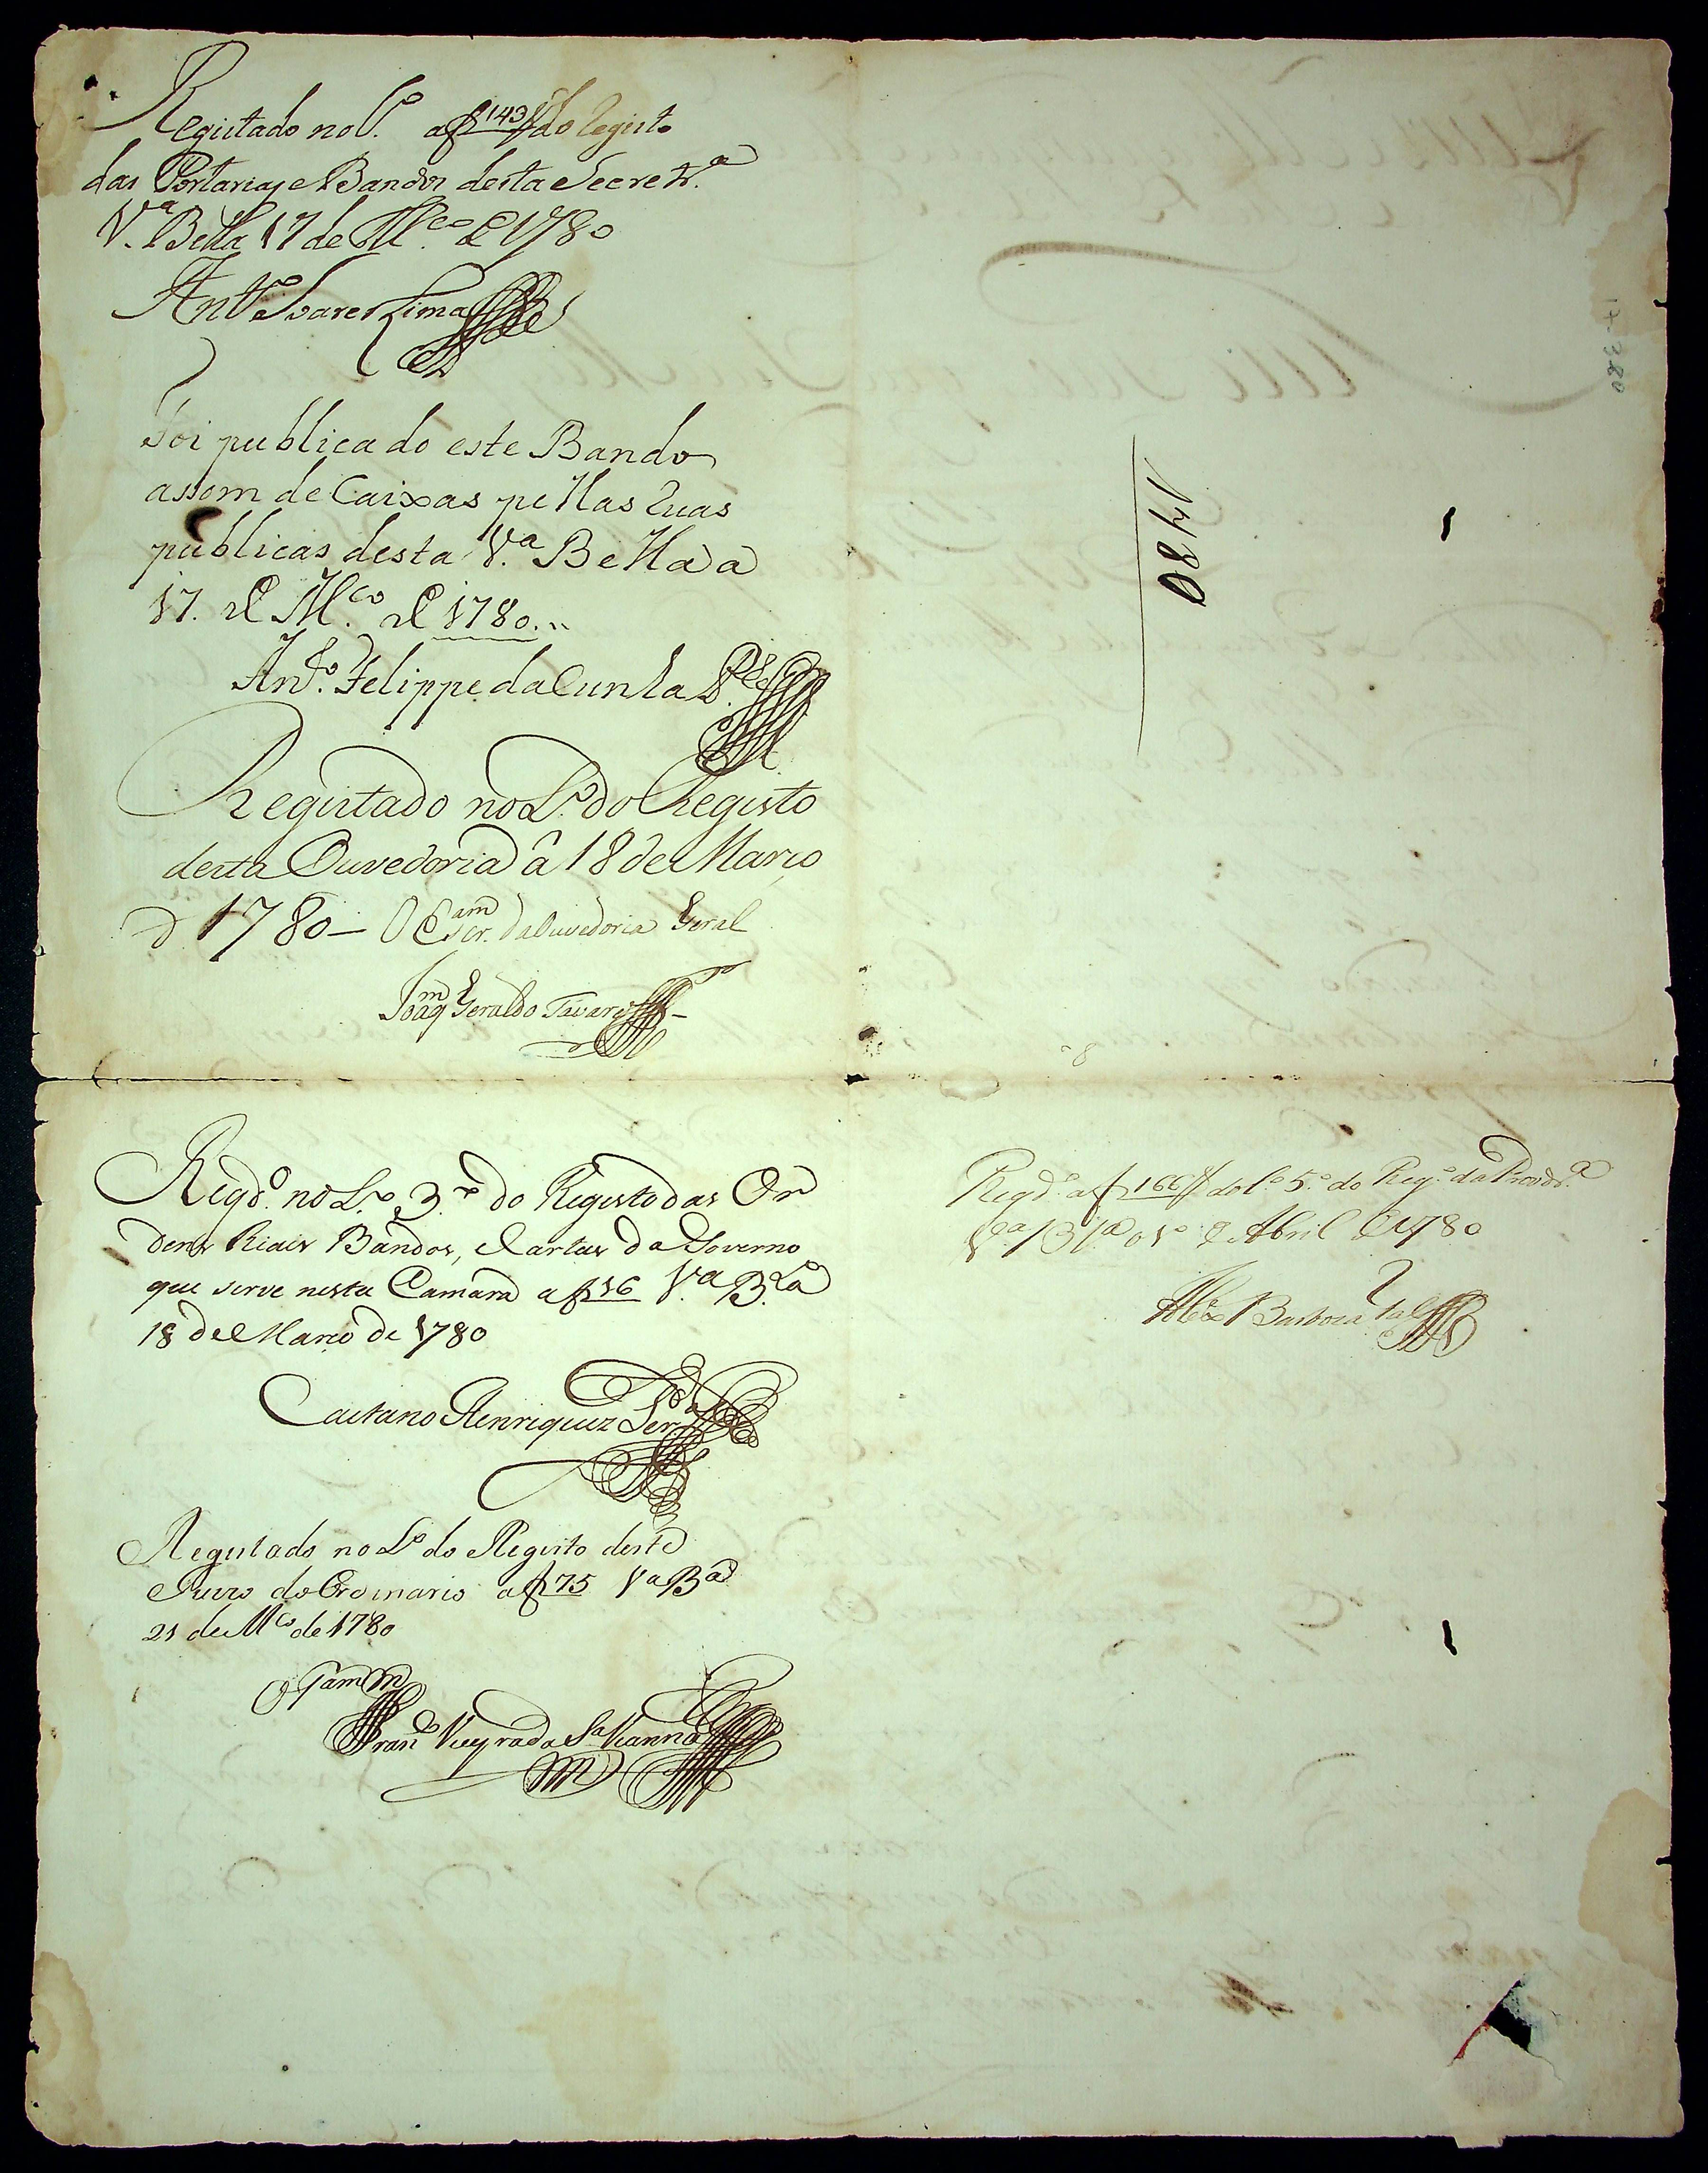 Registado no L.º af 143 do Registo
das Portarias e Bandos desta Secretr.ª
V.ª Bella 17 de M.ço de 1780
Ant.º Soares Lima
Foi publicado este Bando
assom de Caixas pellas Ruas
publicas desta V.ª Bella a
17. de M.ço de 1780.
Ant.º Felippe da Cunha
Registado no L.º do Registo
desta Ouvedoria â 18 de Março
d 1780 - O Escr.am da Ouvedoria Geral
Joaq.m Geraldo Tavares
Regd.º no L.º 3.º do Registo das Or
dens Riais Bandos, e Cartas do Governo
que serve nesta Camara af 16 V.ª B.ª
18 de Março de 1780
Caetano Henriquez
Registado no L.º do Registo deste
Juizo do Ordinario af 75 V.ª B.ª
21 de M.ço de 1780
Fran.co Vieyra da S.ª Vianna
1780
Regd.º af 166 do L.º 5.º do Reg.º da Provdr.ª
V.ª B.ª o 1.º de Abril de 1780
Barboza